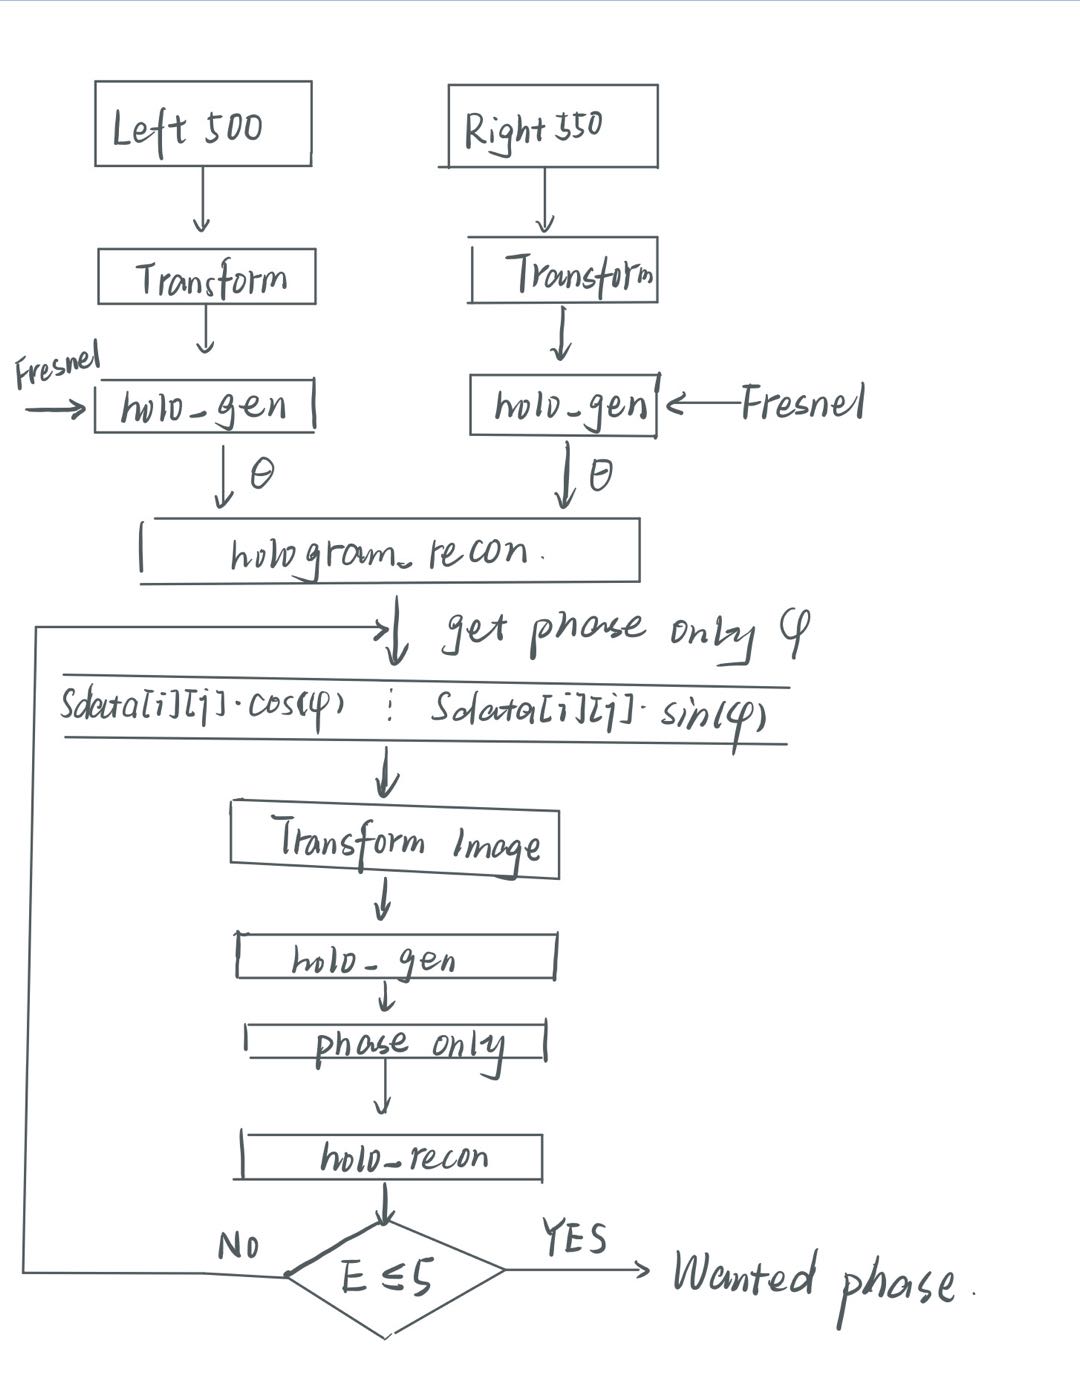 Left 500
Right 550
Transform
Transform
Fresnel
holo_gen
holo_gen
Fresnel
θ
θ
hologram_recon.
get phase only φ
Sdata[i][j]·cos(φ) ⋮ Sdata[i][j]·sin(φ)
Transform Image
holo_gen
phase only
holo_recon
NO
E ≤5
YES
Wanted phase.